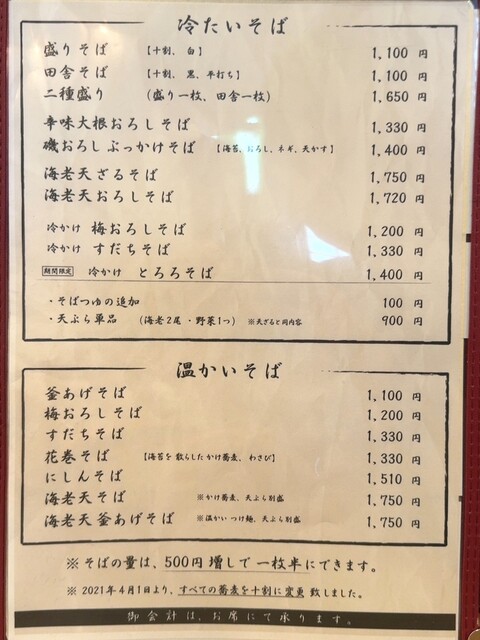 冷たいそば
盛りそば 【十割、白】 1,100 円
田舎そば 【十割、黒、平打ち】 1,100 円
二種盛り (盛り一枚、田舎一枚) 1,650 円
辛味大根おろしそば 1,330 円
磯おろしぶっかけそば 【海苔、おろし、ネギ、天かす】 1,400 円
海老天ざるそば 1,750 円
海老天おろしそば 1,720 円
冷かけ 梅おろしそば 1,200 円
冷かけ すだちそば 1,330 円
期間限定 冷かけ とろろそば 1,400 円
・そばつゆの追加 100 円
・天ぷら単品 (海老2尾・野菜1つ) ※天ざると同内容 900 円
温かいそば
釜あげそば 1,100 円
梅おろしそば 1,200 円
すだちそば 1,330 円
花巻そば 【海苔を散らしたかけ蕎麦、わさび】 1,330 円
にしんそば 1,510 円
海老天そば ※かけ蕎麦、天ぷら別盛 1,750 円
海老天釜あげそば ※温かいつけ麺、天ぷら別盛 1,750 円
※そばの量は、500円増しで一枚半にできます。
※2021年4月1日より、すべての蕎麦を十割に変更致しました。
御会計は、お席にて承ります。